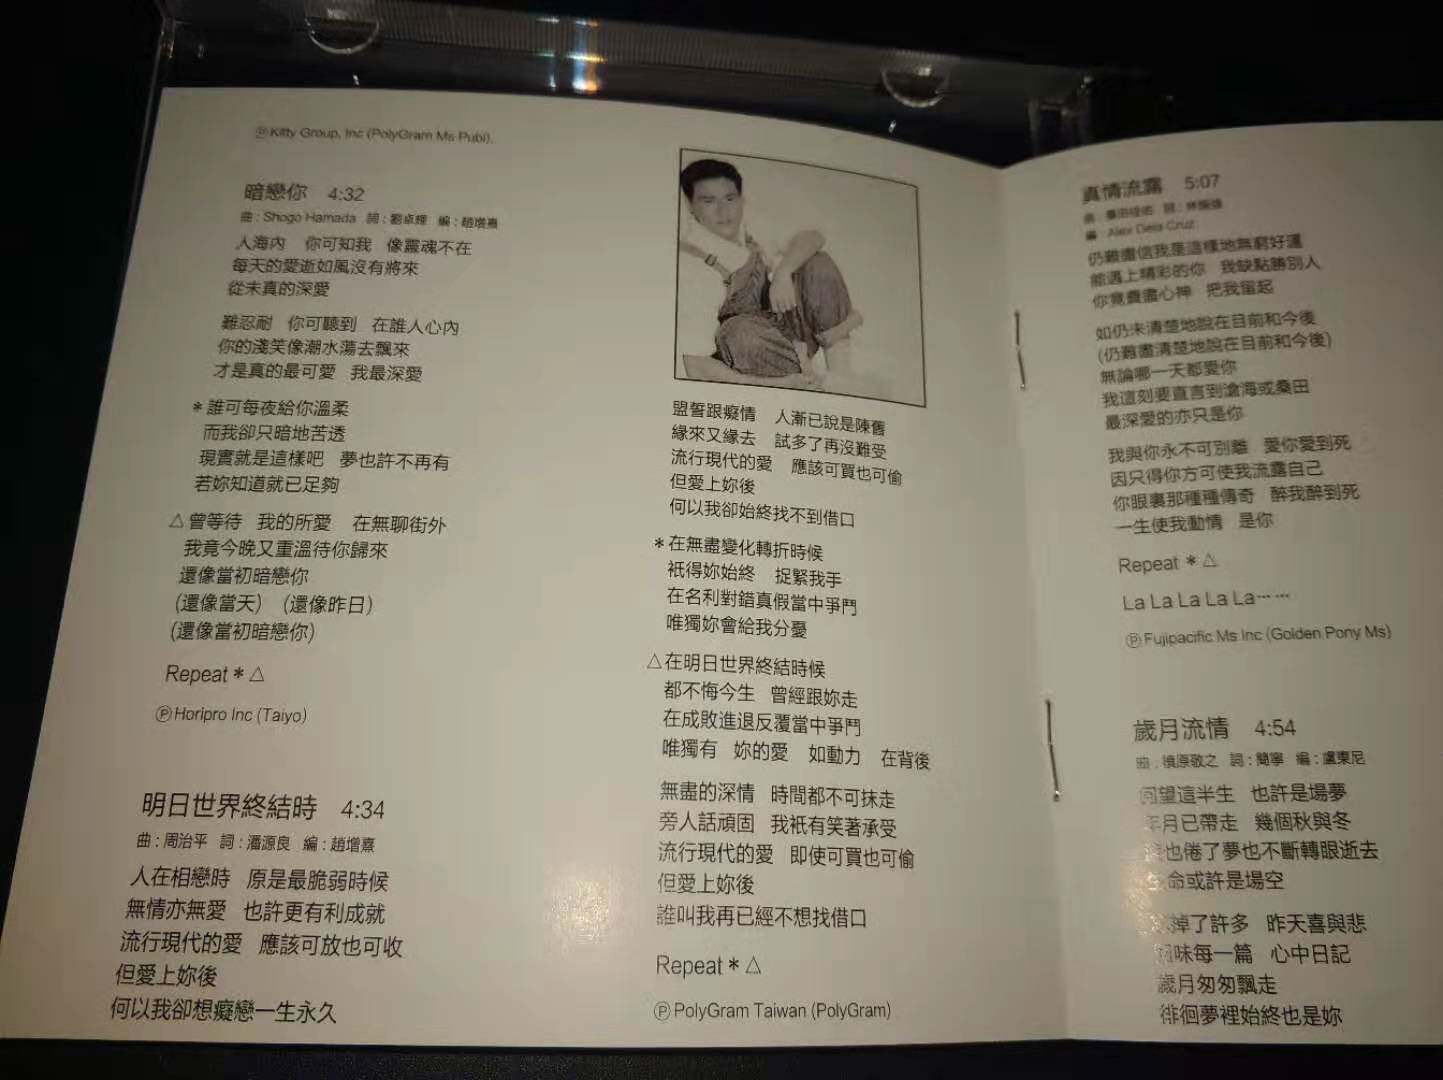 ⓟKitty Group, Inc (PolyGram Ms Publ).
暗戀你 4:32
曲:Shogo Hamada 詞:劉卓輝 編:趙增熹
人海內 你可知我 像靈魂不在
每天的愛逝如風沒有將來
從未真的深愛
難忍耐 你可聽到 在誰人心內
你的淺笑像潮水蕩去飄來
才是真的最可愛 我最深愛
*誰可每夜給你溫柔
而我卻只暗地苦透
現實就是這樣吧 夢也許不再有
若妳知道就已足夠
△曾等待 我的所愛 在無聊街外
我竟今晚又重溫待你歸來
還像當初暗戀你
(還像當天) (還像昨日)
(還像當初暗戀你)
Repeat*△
ⓟHoripro Inc (Taiyo)
明日世界終結時 4:34
曲:周治平 詞:潘源良 編:趙增熹
人在相戀時 原是最脆弱時候
無情亦無愛 也許更有利成就
流行現代的愛 應該可放也可收
但愛上妳後
何以我卻想癡戀一生永久
盟誓跟癡情 人漸已說是陳舊
緣來又緣去 試多了再沒難受
流行現代的愛 應該可買也可偷
但愛上妳後
何以我卻始終找不到借口
*在無盡變化轉折時候
衹得妳始終 捉緊我手
在名利對錯真假當中爭鬥
唯獨妳會給我分憂
△在明日世界終結時候
都不悔今生 曾經跟妳走
在成敗進退反覆當中爭鬥
唯獨有 妳的愛 如動力 在背後
無盡的深情 時間都不可抹走
旁人話頑固 我衹有笑著承受
流行現代的愛 即使可買也可偷
但愛上妳後
誰叫我再已經不想找借口
Repeat*△
ⓟPolyGram Taiwan (PolyGram)
真情流露 5:07
曲:桑田佳祐 詞:林振強
編:Alex Dela Cruz
仍難盡信我是這樣地無窮好運
能遇上精彩的你 我缺點勝別人
你竟費盡心神 把我留起
如仍未清楚地說在目前和今後
(仍難盡清楚地說在目前和今後)
無論哪一天都愛你
我這刻要直言到滄海或桑田
最深愛的亦只是你
我與你永不可別離 愛你愛到死
因只得你方可使我流露自己
你眼裏那種種傳奇 醉我醉到死
一生使我動情 是你
Repeat*△
La La La La La⋯⋯
ⓟFujipacific Ms Inc (Golden Pony Ms)
歲月流情 4:54
曲:槙原敬之 詞:簡寧 編:盧東尼
回望這半生 也許是場夢
年月已帶走 幾個秋與冬
也倦了夢也不斷轉眼逝去
命或許是場空
掉了許多 昨天喜與悲
味每一篇 心中日記
歲月匆匆飄走
徘徊夢裡始終也是妳